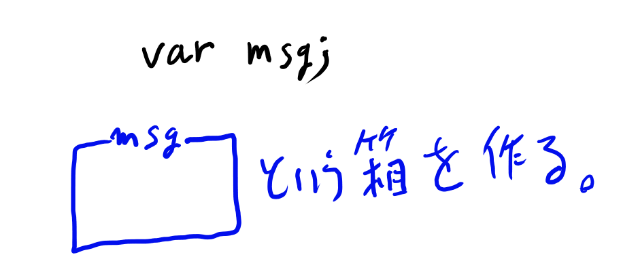 var msg;
msg という箱を作る。